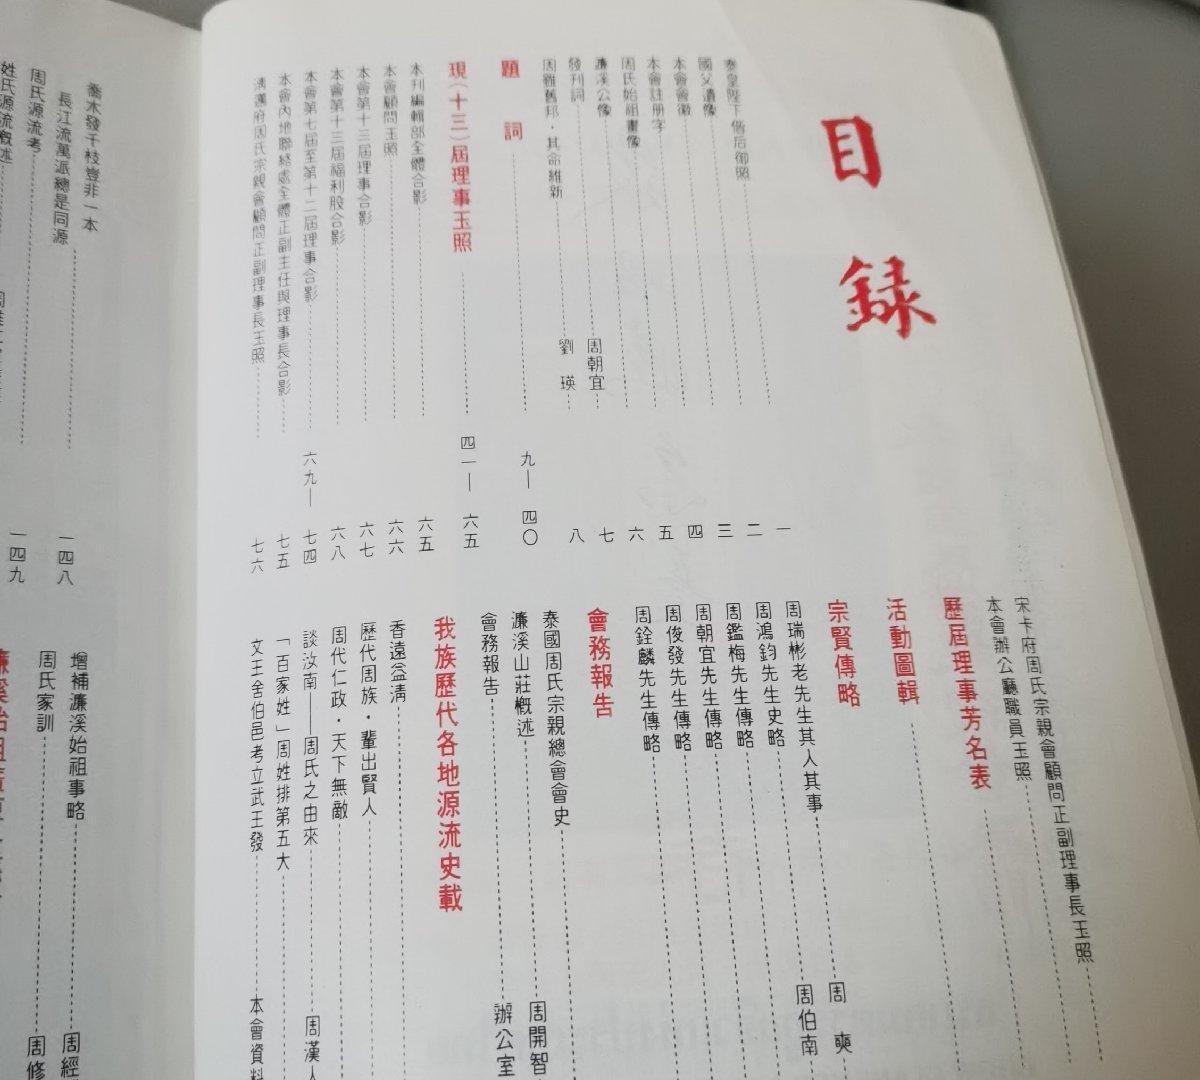 目錄
泰皇陛下偕后御照 一
國父遺像 二
本會會徽 三
本會註册字 四
周氏始祖畫像 五
濂溪公像 六
發刊詞 周朝宜 七
周雖舊邦·其命維新 劉瑛 八
題詞 九—四〇
現(十三)屆理事玉照 四一—六五
本刊編輯部全體合影 六五
本會顧問玉照 六六
本會第十三屆理事合影 六七
本會第十三屆福利股合影 六八
本會第七屆至第十二屆理事合影 六九—七四
本會內地聯絡處全體正副主任與理事長合影 七五
清邁府周氏宗親會顧問正副理事長玉照 七六
宋卡府周氏宗親會顧問正副理事長玉照
本會辦公廳職員玉照
歷屆理事芳名表
活動圖輯
宗賢傳略
周瑞彬老先生其人其事 周奭
周鴻鈞先生史略 周伯南
周鑑梅先生傳略
周朝宜先生傳略
周俊發先生傳略
周銓麟先生傳略
會務報告
泰國周氏宗親總會會史
濂溪山莊概述 周開智
會務報告 辦公室
我族歷代各地源流史載
香遠益清
歷代周族·輩出賢人
周代仁政·天下無敵
談汝南—周氏之由來 周漢人
「百家姓」周姓排第五大
文王舍伯邑考立武王發 本會資料
喬木發千枝豈非一本
長江流萬派總是同源 一四八
周氏源流考 一四九
姓氏源流概述
增補濂溪始祖事略 周經
周氏家訓 周修